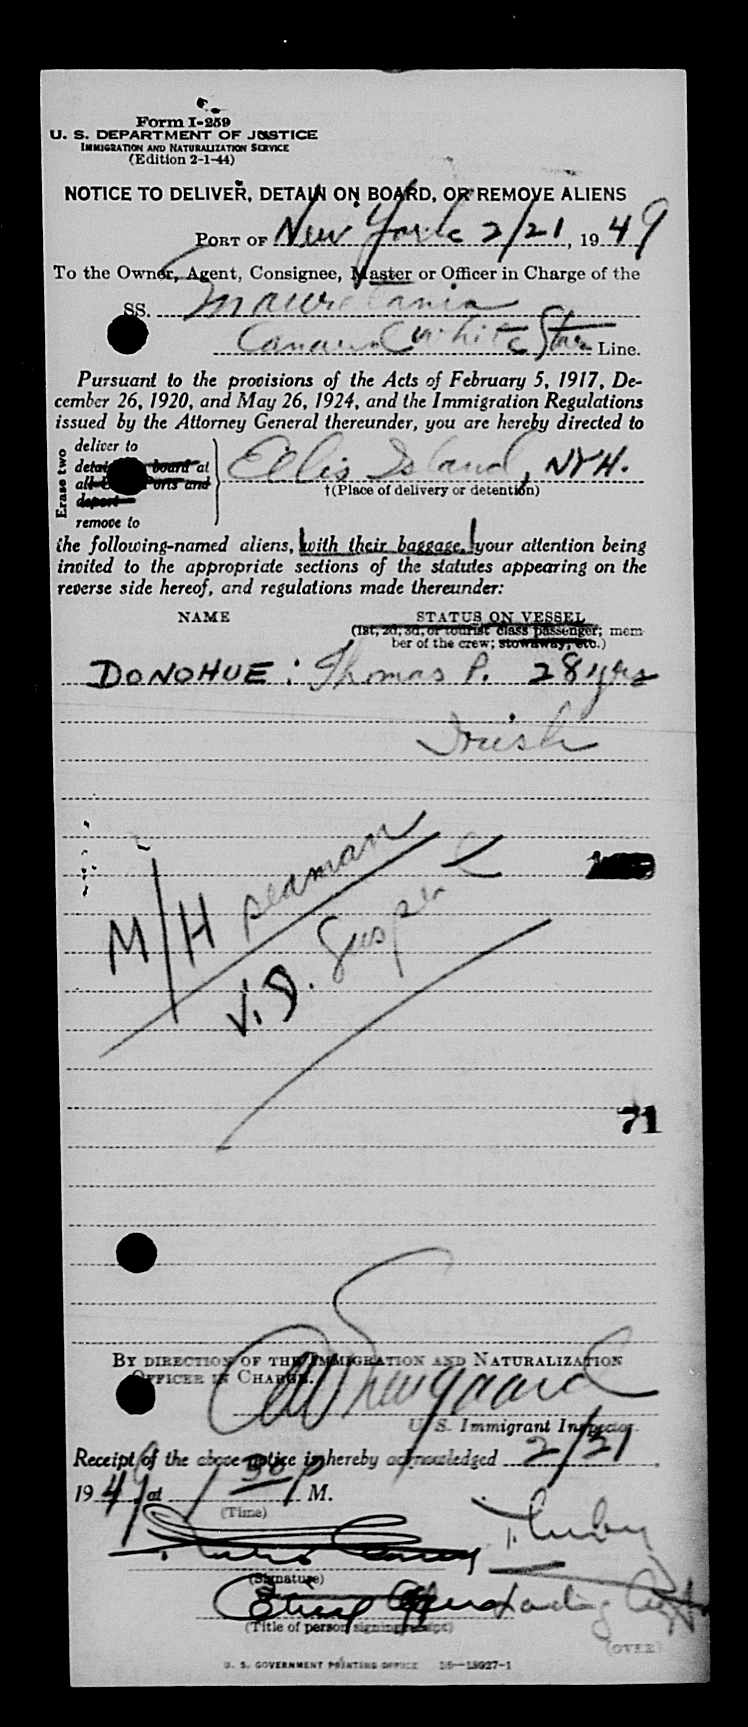 Form I-259
U. S. DEPARTMENT OF JUSTICE
IMMIGRATION AND NATURALIZATION SERVICE
(Edition 2-1-44)
NOTICE TO DELIVER, DETAIN ON BOARD, OR REMOVE ALIENS
PORT OF New York 2/21, 1949
To the Owner, Agent, Consignee, Master or Officer in Charge of the
SS. Mauretania
Cunard White Star Line.
Pursuant to the provisions of the Acts of February 5, 1917, De-
cember 26, 1920, and May 26, 1924, and the Immigration Regulations
issued by the Attorney General thereunder, you are hereby directed to
Erase two
deliver to
detain on board at
all Ports and
deport
remove to
Ellis Island, NYH.
†(Place of delivery or detention)
the following-named aliens, with their baggage, your attention being
invited to the appropriate sections of the statutes appearing on the
reverse side hereof, and regulations made thereunder:
NAME STATUS ON VESSEL
(1st, 2d, 3d, or tourist class passenger; mem-
ber of the crew; stowaway, etc.)
DONOHUE: Thomas P. 28 yrs
Irish
M/H seaman
V.D.
71
BY DIRECTION OF THE IMMIGRATION AND NATURALIZATION
OFFICER IN CHARGE.
U. S. Immigrant Inspector.
Receipt of the above notice is hereby acknowledged 2/21,
1949, at 1 30 P M.
(Time)
(Signature)
(Title of person signing receipt)
(OVER)
U. S. GOVERNMENT PRINTING OFFICE 16—18927-1